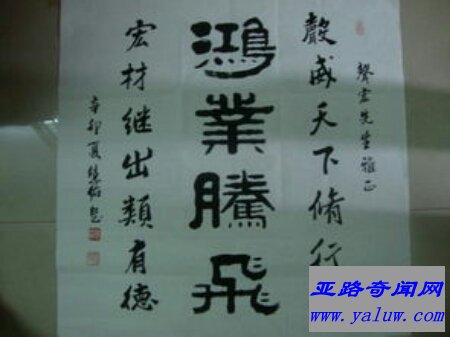 聲宏先生雅正
聲威天下脩行
鴻業騰飛
宏材继出類有德
辛卯夏
亚路奇闻网
www.yaluw.com